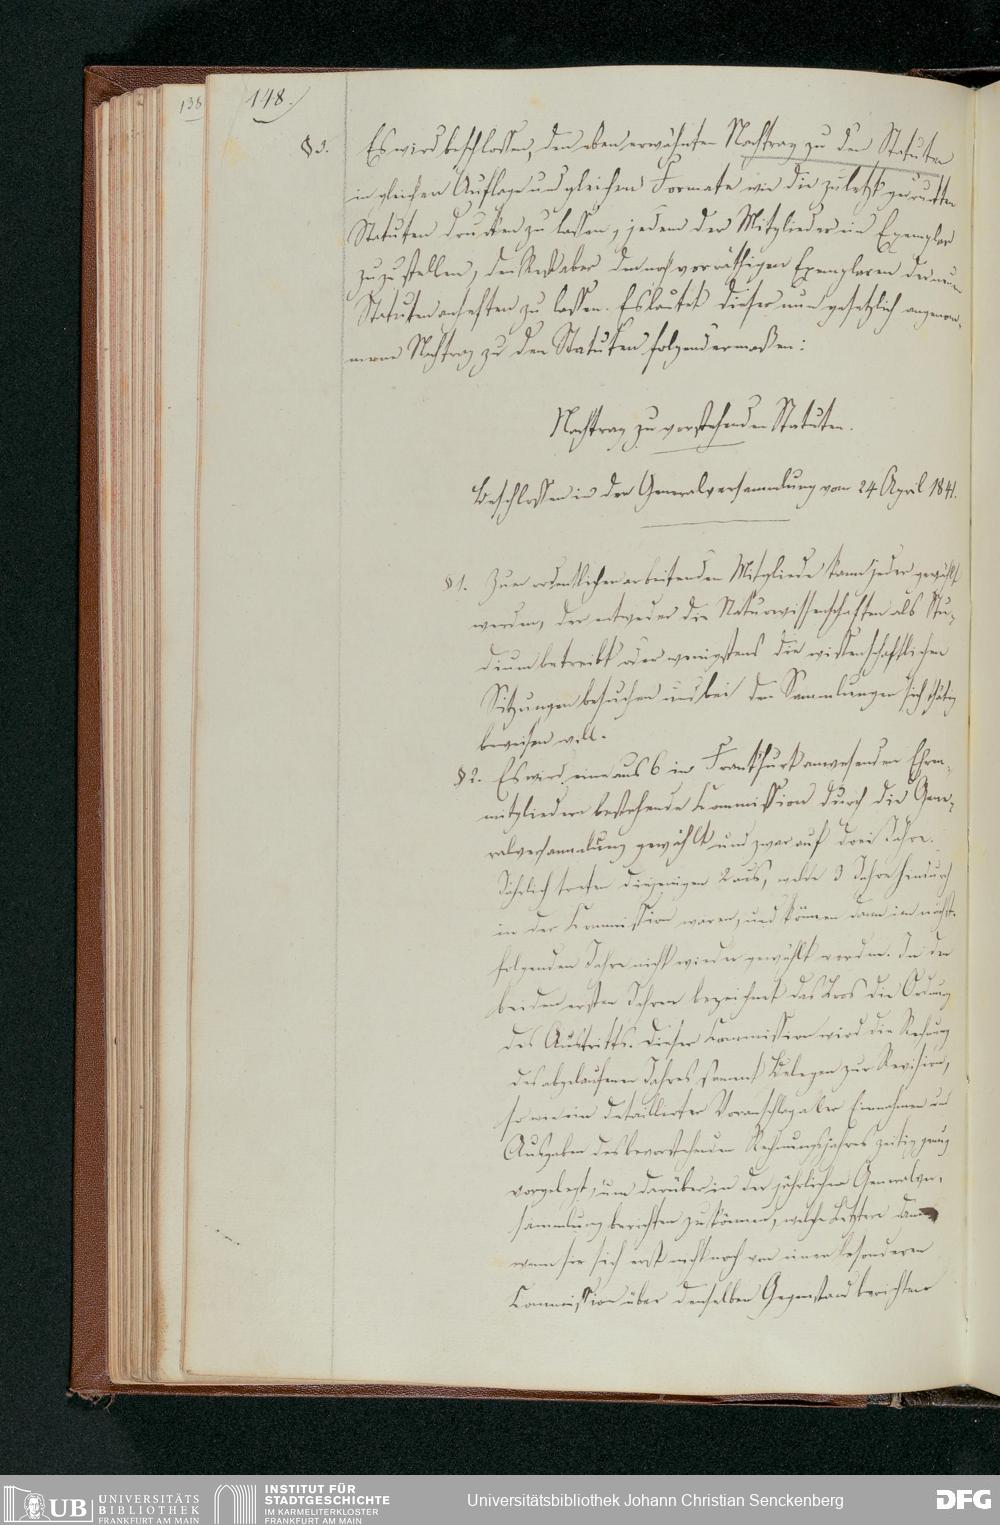 138
148.
§ 3. Es wird beschlossen, den oben erwähnten Nachtrag zu den Statuten
in gleicher Auflage und gleichem Formate wie die zuletzt gedruckten
Statuten drucken zu lassen, jedem der Mitglieder ein Exemplar
zuzustellen, den Rest aber den noch vorräthigen Exemplaren der neuen
Statuten anheften zu lassen. Es lautet dieser nun gesetzlich angenom-
mene Nachtrag zu den Statuten folgendermaßen:
Nachtrag zu vorstehenden Statuten.
Beschlossen in der Generalversammlung vom 24 April 1841.
§ 1. Zum ordentlichen arbeitenden Mitgliede kann jeder gewählt
werden, der entweder die Naturwissenschaften als Stu-
dium betreibt oder wenigstens die wissenschaftlichen
Sitzungen besuchen und bei den Sammlungen sich thätig
beweisen will.
§ 2. Es wird eine aus 6 in Frankfurt anwesenden Ehren-
mitgliedern bestehende Commission durch die Gene-
ralversammlung gewählt und zwar auf drei Jahre.
Jährlich treten diejenigen 2 aus, welche 3 Jahre hindurch
in der Commission waren, und können dann im nächst-
folgenden Jahre nicht wieder gewählt werden. In den
beiden ersten Jahren bezeichnet das Loos die Ordnung
des Austritts. Dieser Commission wird die Rechnung
des abgelaufenen Jahres sammt Belegen zur Revision,
so wie ein detaillirter Voranschlag aller Einnahmen und
Ausgaben des bevorstehenden Rechnungsjahres zeitig genug
vorgelegt, um darüber in der jährlichen Generalver-
sammlung berichten zu können, welche Letztere dann
wenn sie sich erst nicht noch von einer besonderen
Commission über denselben Gegenstand berichten
UB UNIVERSITÄTS
BIBLIOTHEK
FRANKFURT AM MAIN
INSTITUT FÜR
STADTGESCHICHTE
IM KARMELITERKLOSTER
FRANKFURT AM MAIN
Universitätsbibliothek Johann Christian Senckenberg
DFG